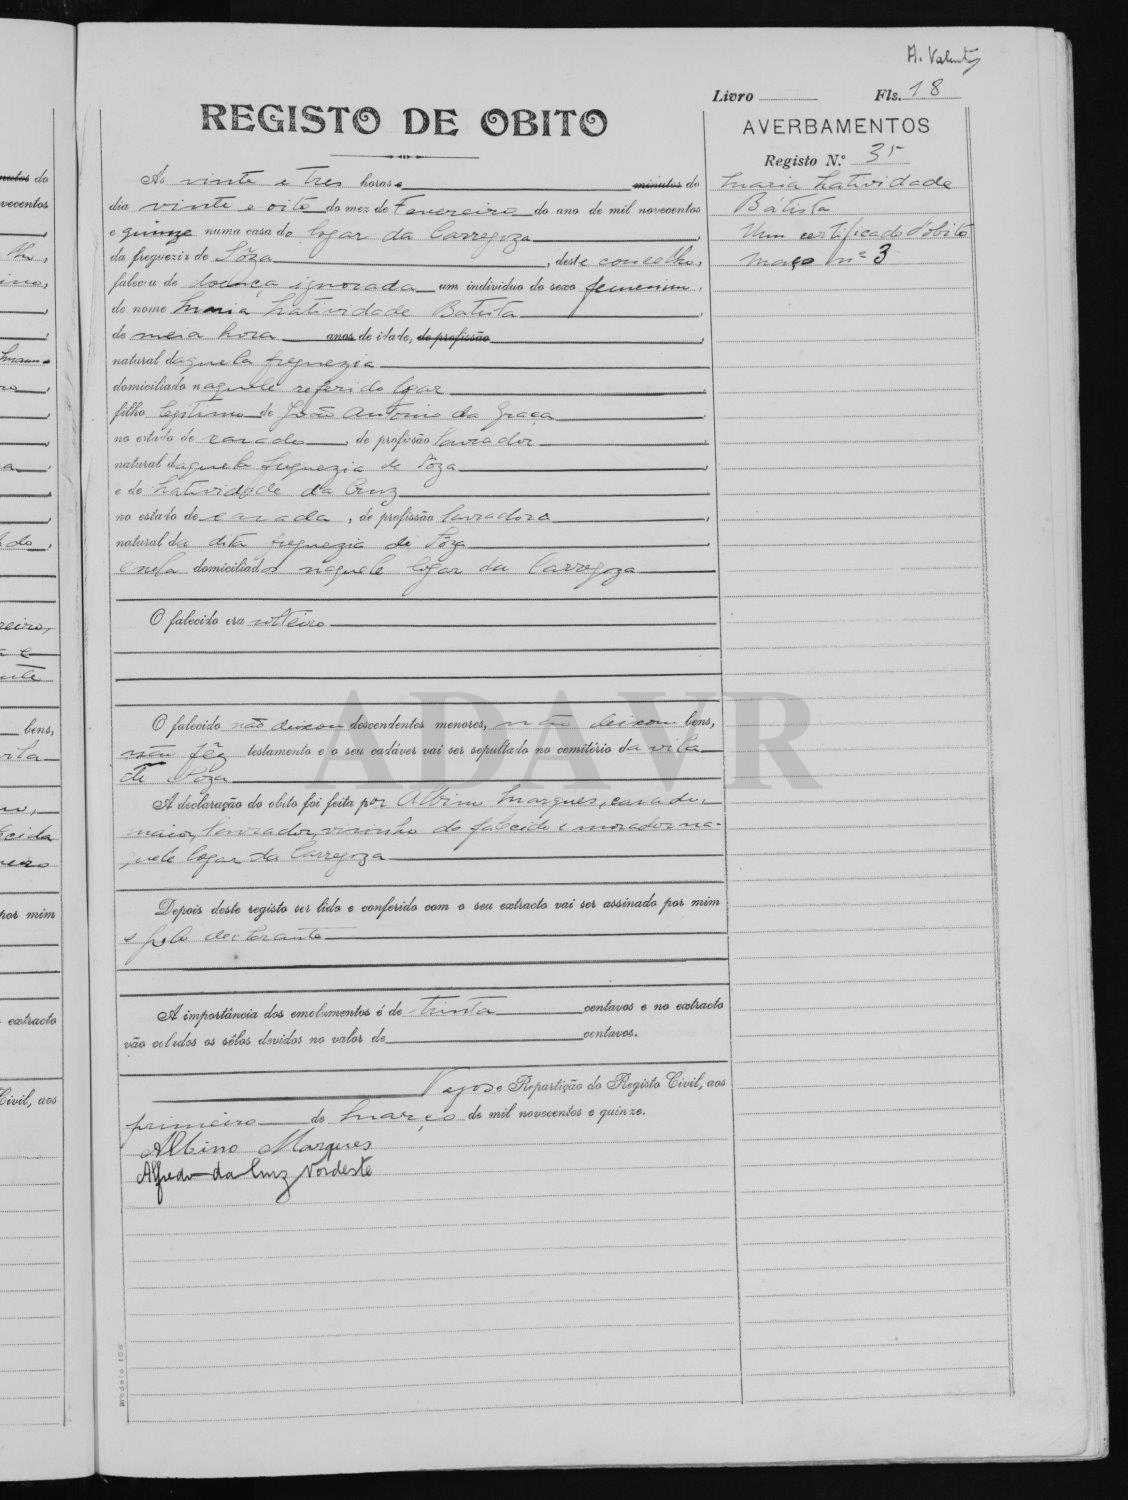 A. Valenty
Livro Fls. 18
REGISTO DE OBITO
AVERBAMENTOS
Registo N.º 35
Maria Natividade
Batista
Um certificado d'óbito
Maço nº 3
Ás vinte e tres horas e minutos do
dia vinte e oito do mez de Fevereiro do ano de mil novecentos
e quinze numa casa do logar da Carregoza
da freguezia de Sôza, deste concelho,
faleceu de doença ignorada um individuo do sexo femenino,
de nome Maria Natividade Batista,
de meia hora anos de idade, de profissão
natural daquela freguezia
domiciliado naquele referido logar
filho legitimo de João Antonio da Graça
no estado de casado, de profissão lavrador
natural daquela freguezia de Sôza
e de Natividade da Cruz
no estado de casada, de profissão lavradora
natural da dita freguezia de Sôza
e nela domiciliados naquele logar da Carregoza
O falecido era solteiro
O falecido não deixou descendentes menores, não deixou bens,
não fêz testamento e o seu cadáver vai ser sepultado no cemitério da vila
de Sôza
A declaração do obito foi feita por Albino Marques, casado,
maior, lavrador, visinho do falecido e morador na-
quele logar da Carregoza
Depois deste registo ser lido e conferido com o seu extracto vai ser assinado por mim
e pelo declarante
A importância dos emolumentos é de trinta centavos e no extracto
vão colados os sêlos devidos no valor de centavos.
Vagos e Repartição do Registo Civil, aos
primeiro de Março de mil novecentos e quinze.
Albino Marques
Alfredo da Cruz Nordeste
Modelo 105
ADAVR